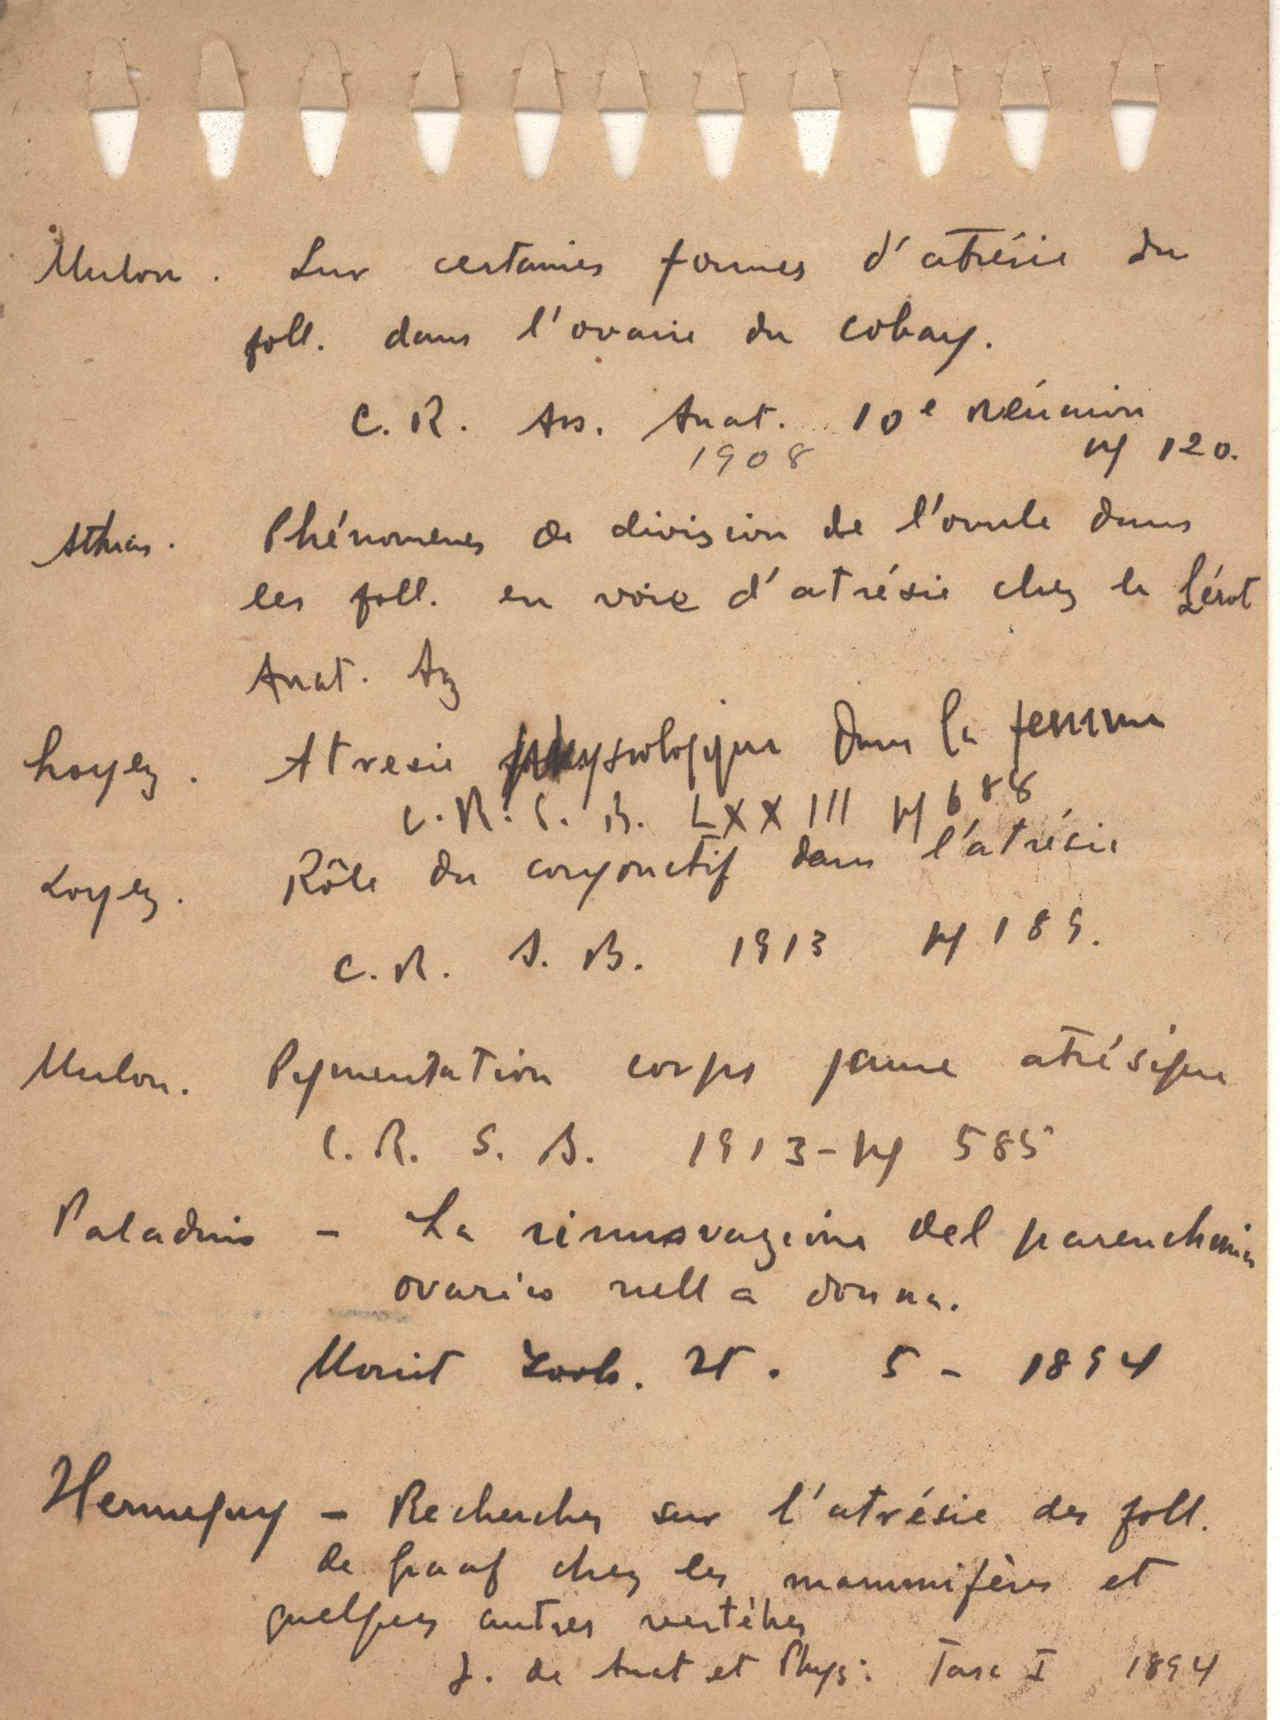 Mulon. Sur certaines formes d'atrésie du
foll. dans l'ovaire du cobaye.
C. R. Ass. Anat. 10e Réunion
1908 p 120.
Athias. Phénomènes de division de l'ovule dans
les foll. en voie d'atrésie chez le Lérot
Anat. Az
Loyez. Atresie physiologique dans la femme
C. R. S. B. LXXIII p 688
Loyez. Rôle du conjonctif dans l'atrésie
C. R. S. B. 1913 p 189.
Mulon. Pigmentation corps jaune atrésique
C. R. S. B. 1913 - p 585
Paladino - La rinnovazione del parenchima
ovarico nella donna.
Monit Zool. It. 5 - 1894
Henneguy - Recherches sur l'atrésie des foll.
de Graaf chez les mammifères et
quelques autres vertébrés
J. de Anat et Phys. Fasc I 1894